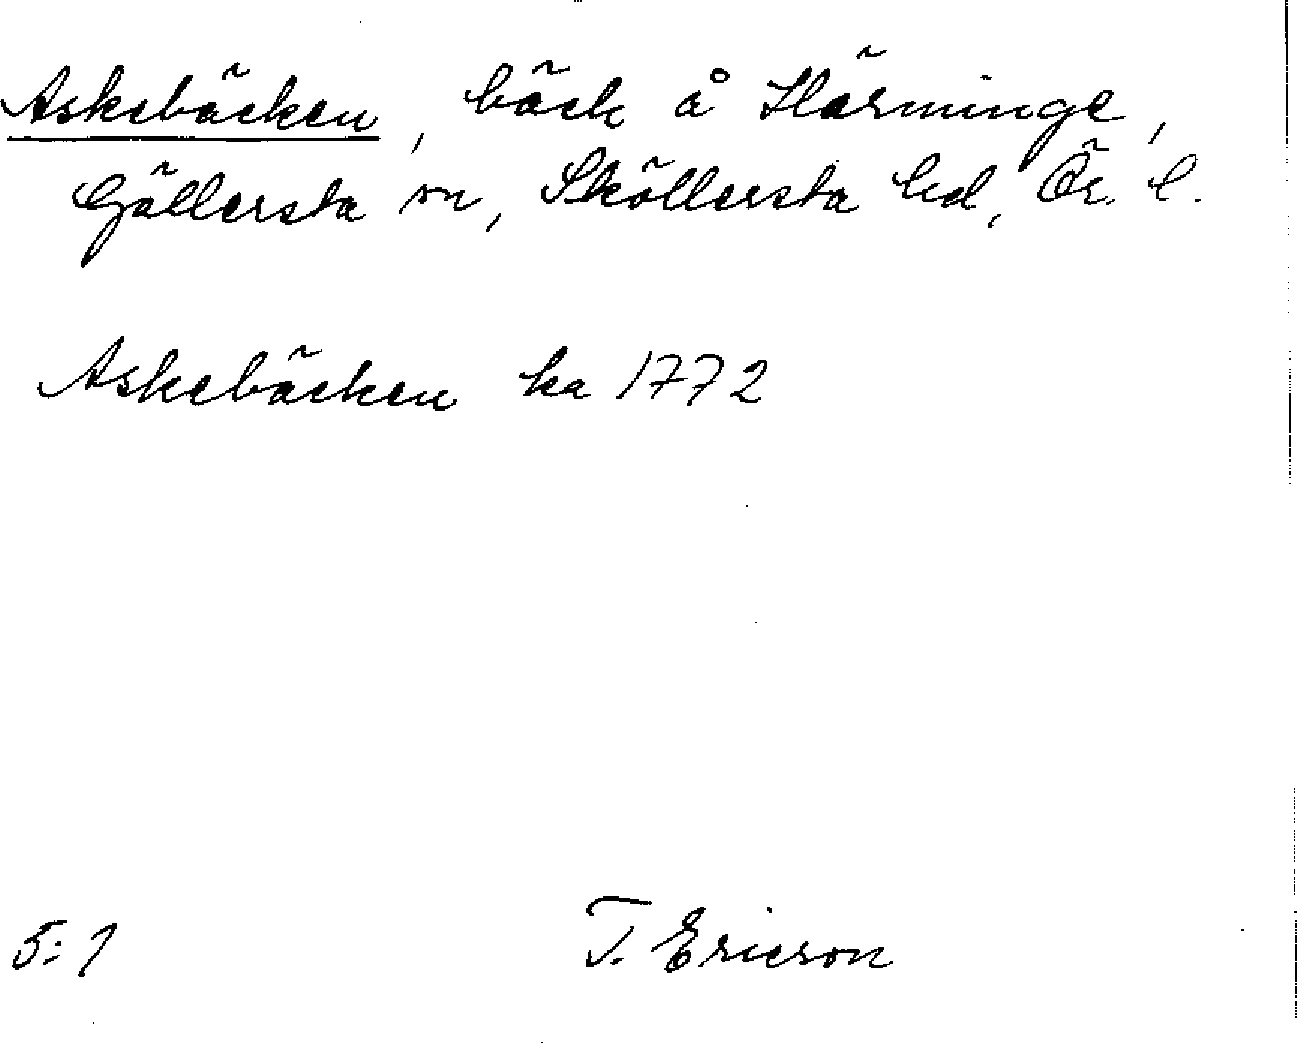 Askebäcken, bäck å Härminge,
Gällersta sn, Sköllersta hd, Ör. l.
Askebäcken ka 1772
5:1 T. Ericson